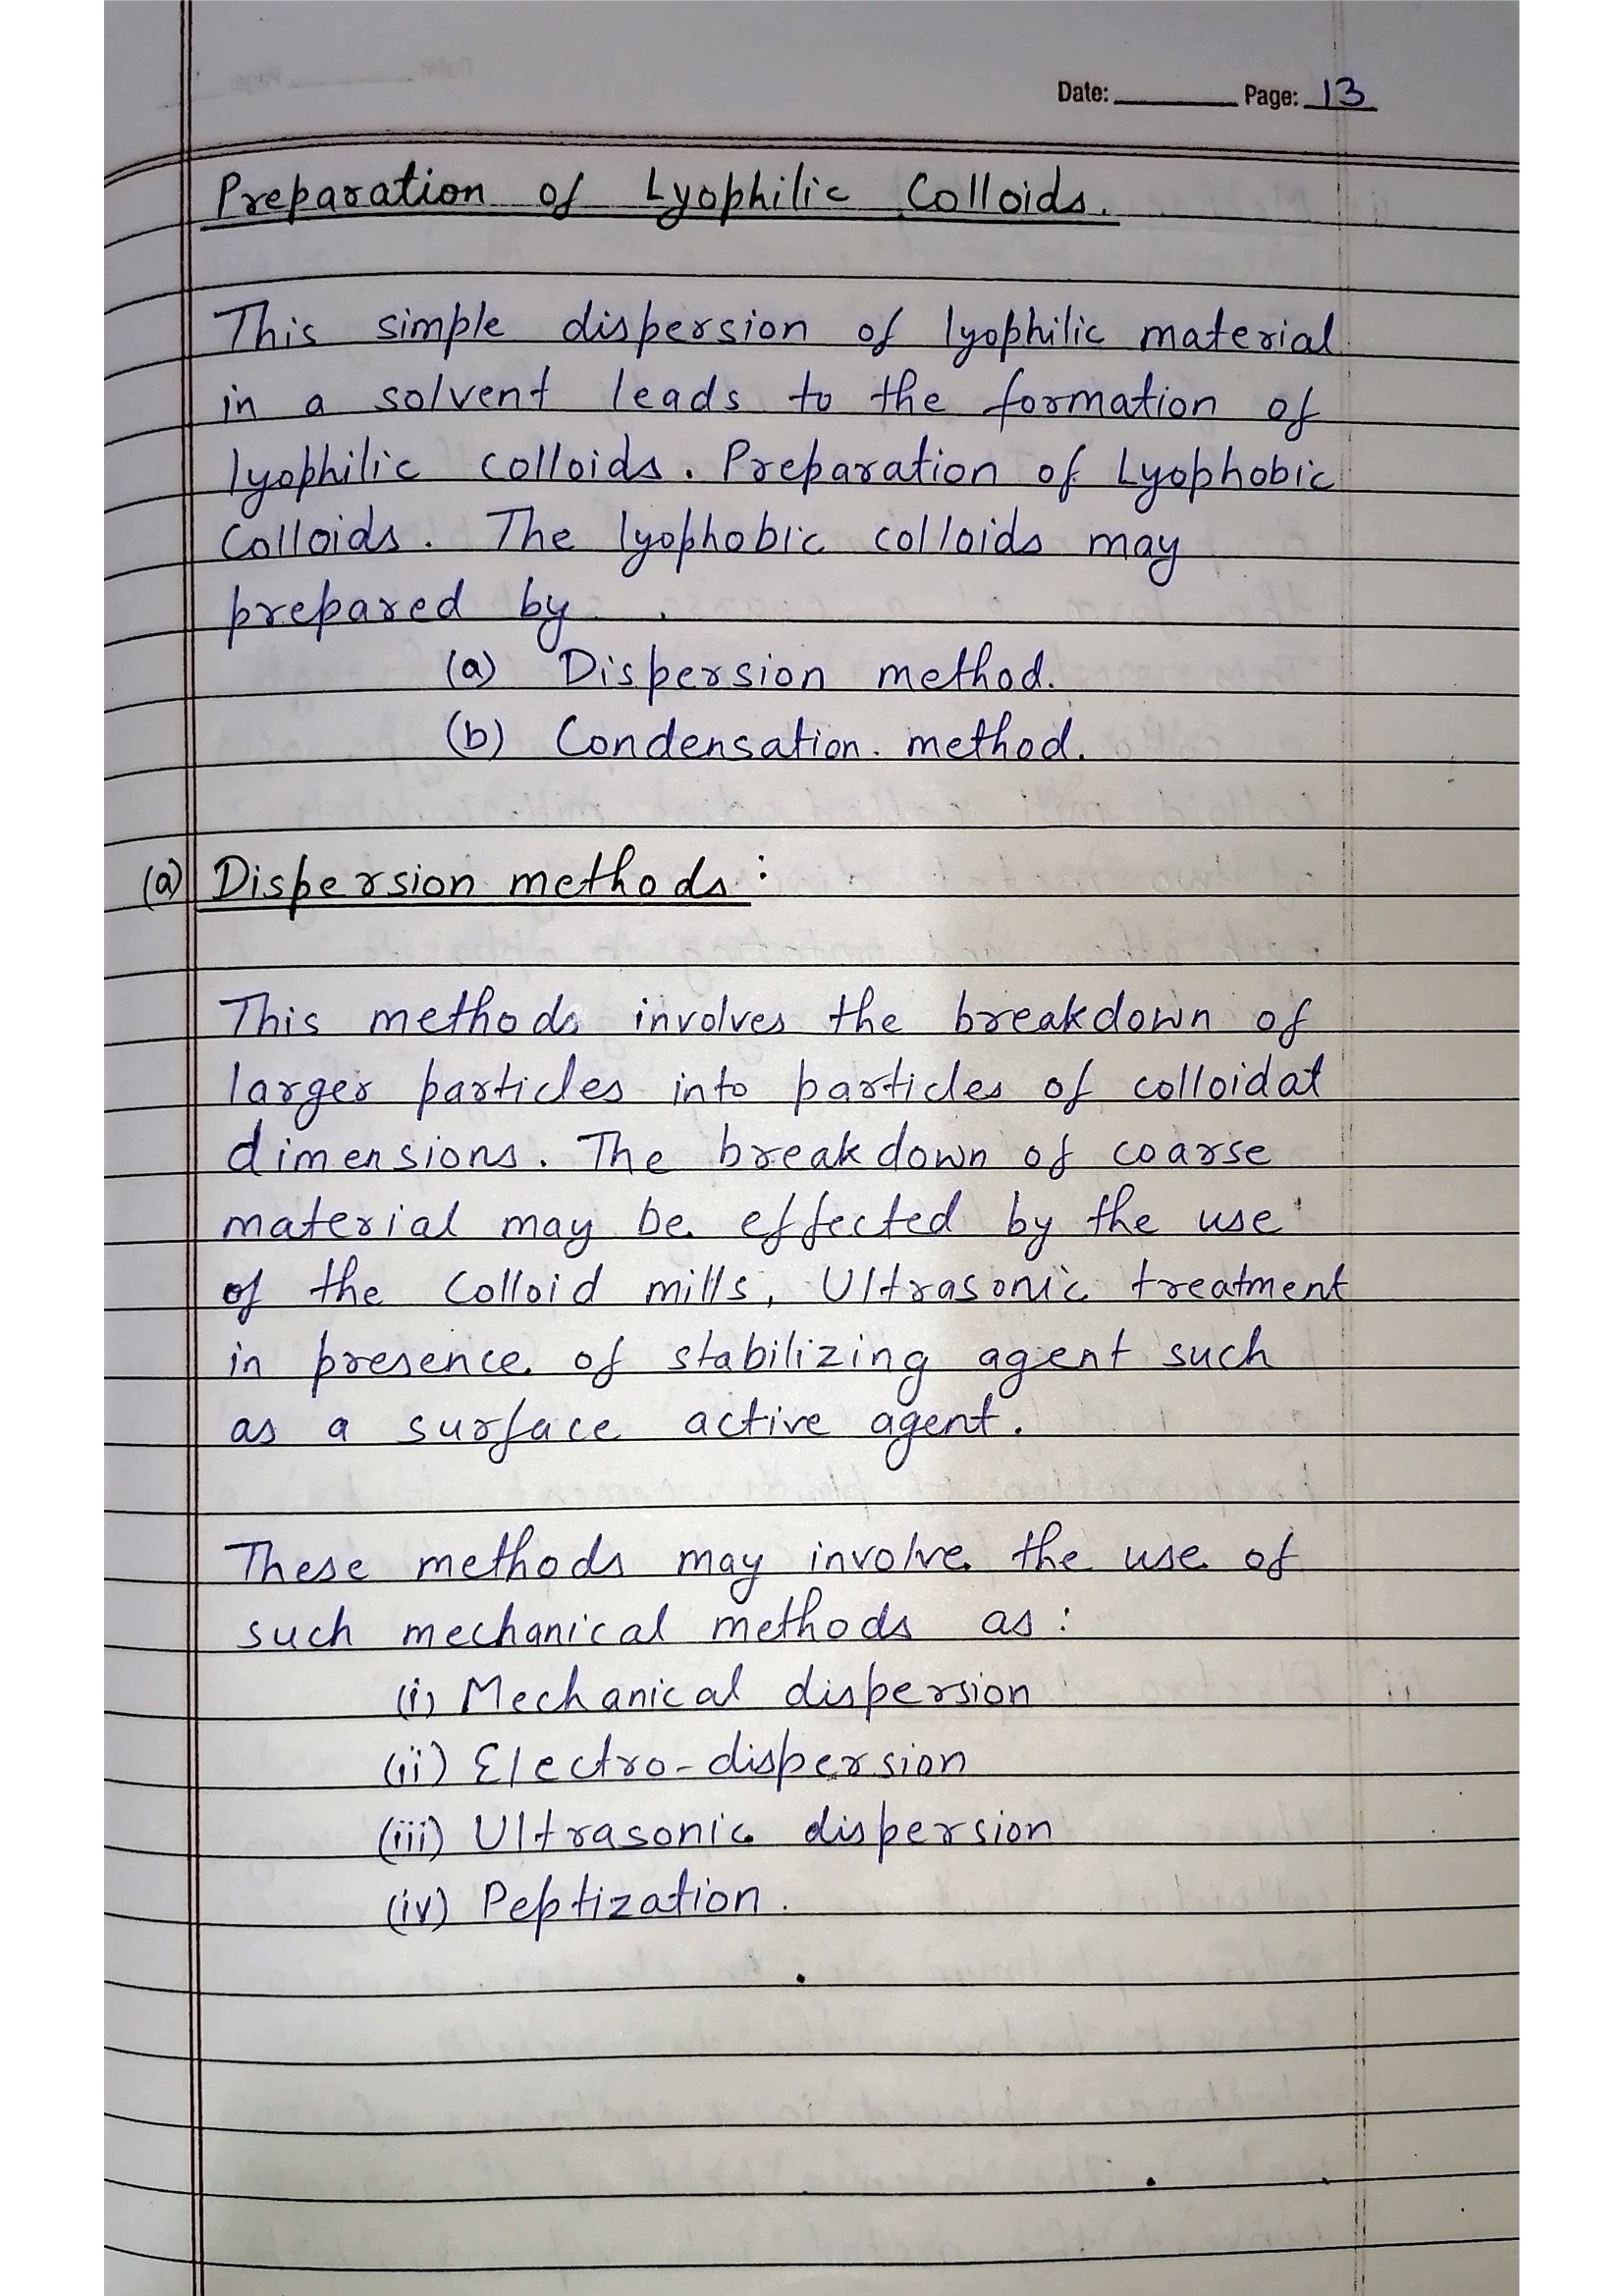 Date: ________ Page: 13
Preparation of Lyophilic Colloids.
This simple dispersion of lyophilic material
in a solvent leads to the formation of
lyophilic colloids. Preparation of Lyophobic
Colloids. The lyophobic colloids may
prepared by
(a) Dispersion method.
(b) Condensation method.
(a) Dispersion methods:
This methods involves the breakdown of
larger particles into particles of colloidat
dimensions. The breakdown of coarse
material may be effected by the use
of the Colloid mills, Ultrasonic treatment
in presence of stabilizing agent such
as a surface active agent.
These methods may involve the use of
such mechanical methods as:
(i) Mechanical dispersion
(ii) Electro-dispersion
(iii) Ultrasonic dispersion
(iv) Peptization.